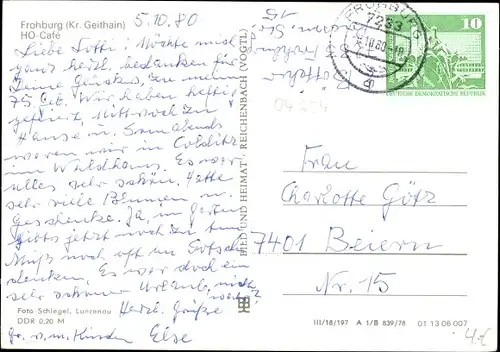 Frohburg (Kr. Geithain)
HO-Café
5.10.80
Liebe Lotti! Möchte mich
ganz herzl. bedanken für
Deine Grüße zu meinem
75. Geb. Wir haben heftig
gefeiert, Mittwoch zu
Hause u. Sonnabends
waren wir in Colditz
im Waldhaus. Es war
alles sehr schön. Hatte
sehr viele Blumen u.
Geschenke. Ja, im Garten
gibts jetzt noch zu tun
Muß noch oft an
denken, Es war doch ein
sehr schöner Urlaub, nicht
wahr?
Herzl. Grüße
Else
Foto Schlegel, Lunzenau
DDR 0,20 M
BILD UND HEIMAT REICHENBACH (VOGTL)
Böttcher
15
FROHBURG
7233
10
DEUTSCHE DEMOKRATISCHE REPUBLIK
Frau
Charlotte Götz
7401 Beiern
Nr. 15
III/18/197 A 1/B 839/78 01 13 06 007
4,-€